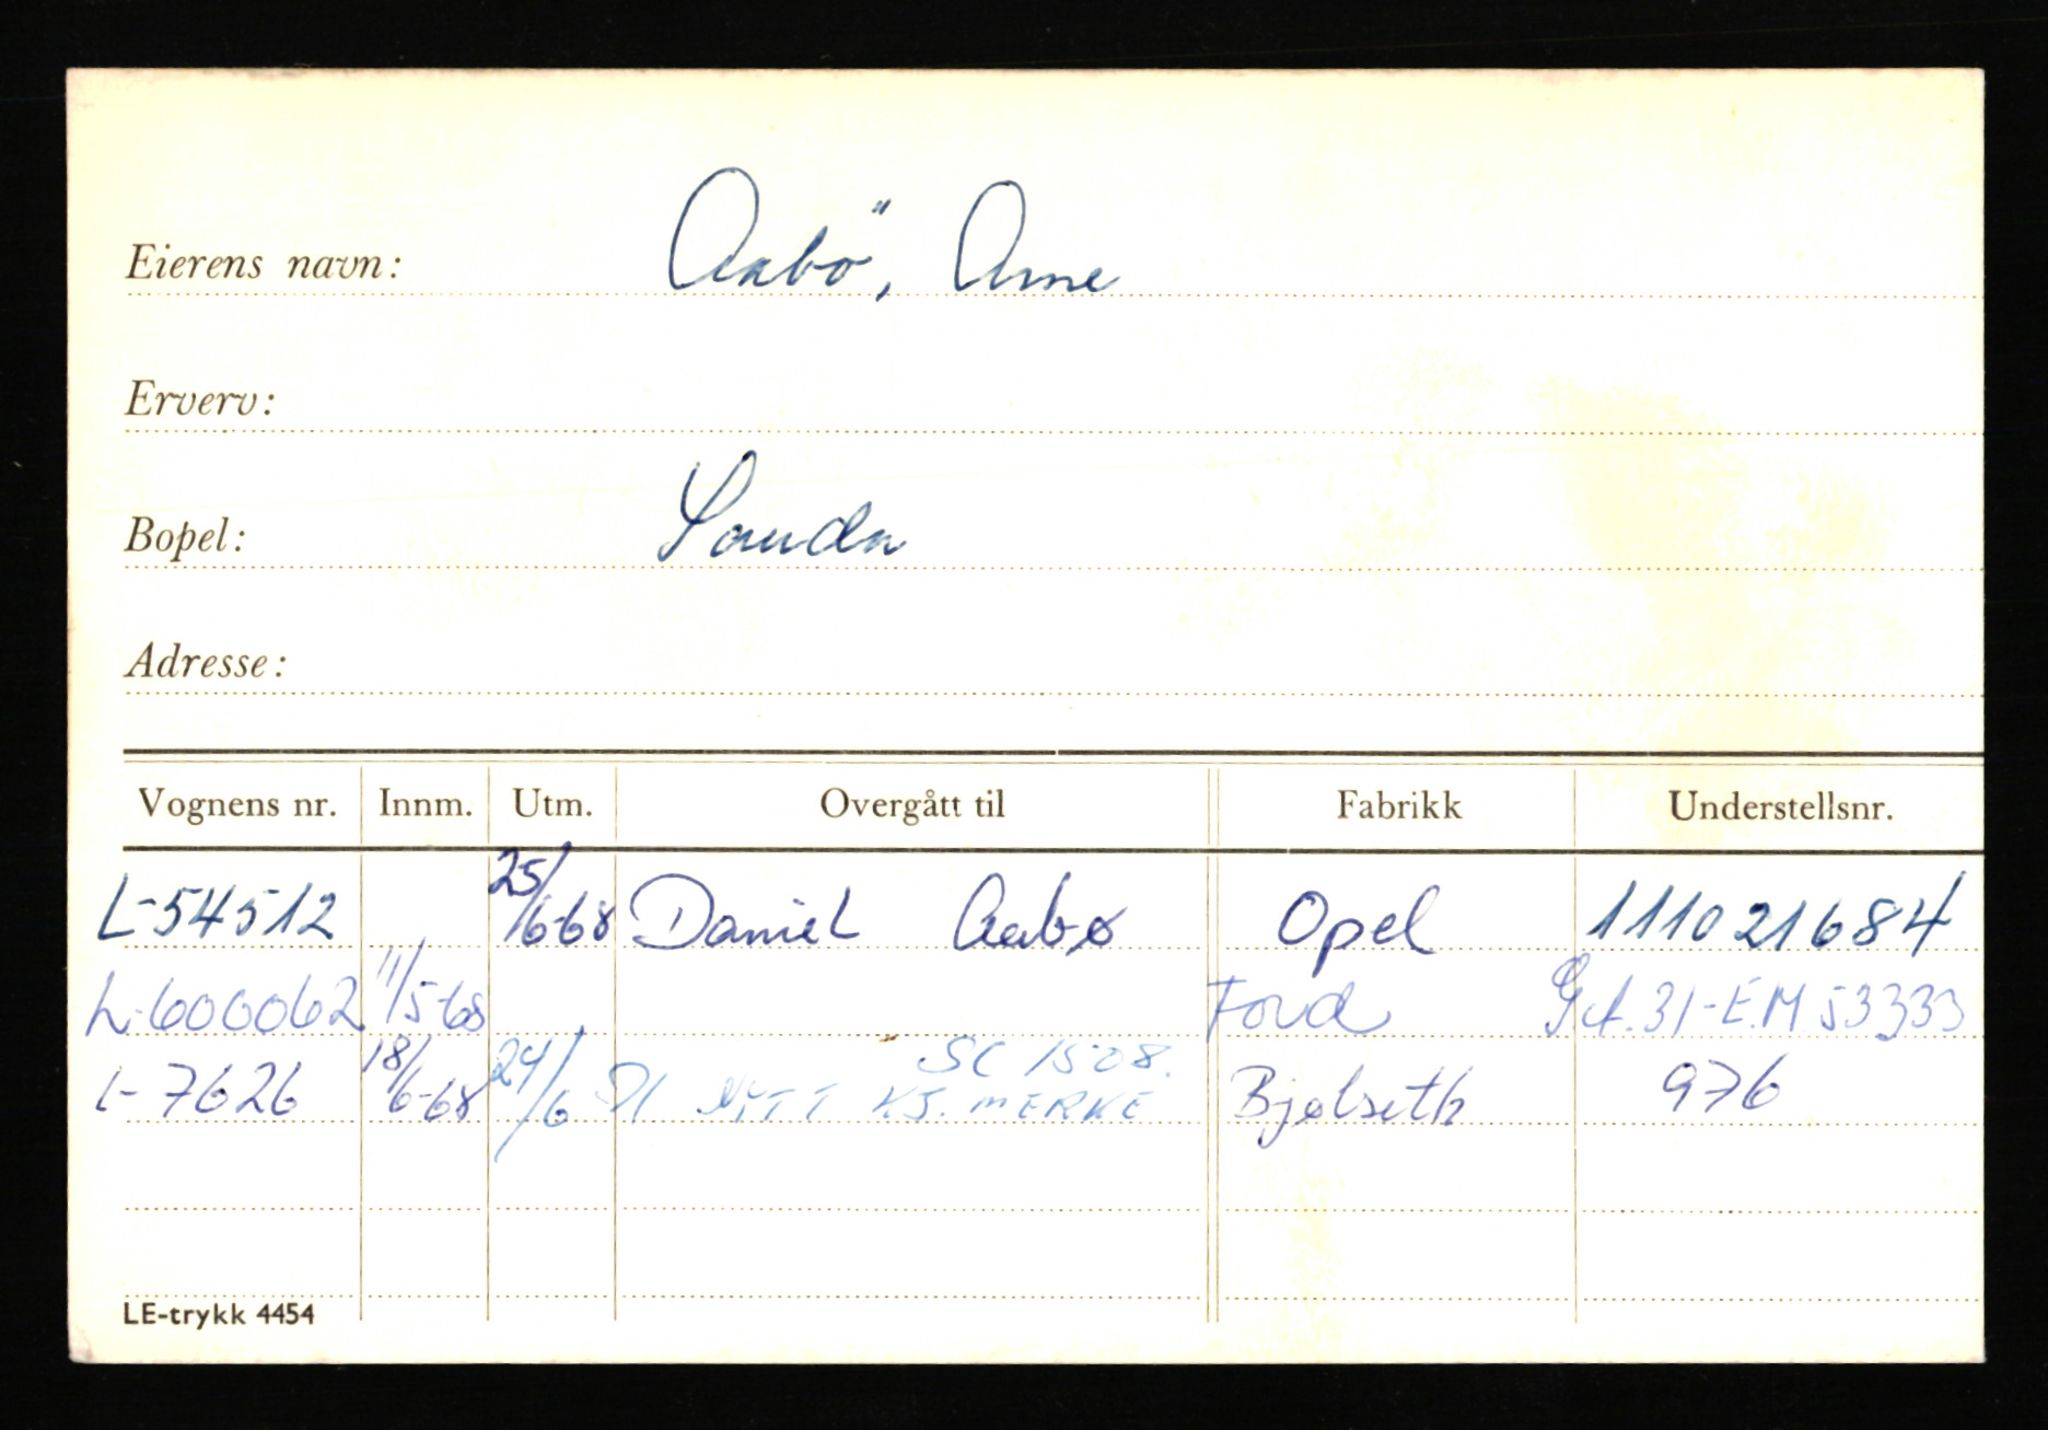 Eierens navn: Aabö, Arne
Erverv:
Bopel: Sauda
Adresse:
Vognens nr. Innm. Utm. Overgått til Fabrikk Understellsnr.
L-54512 25/6-68 Daniel Aabø Opel 111021684
L-600062 11/5-68 Ford Gct.31-E.M53333
SC 1508.
L-7626 18/6-68 24/6 81 NYTT KJ.MERKE Bjølseth 976
LE-trykk 4454